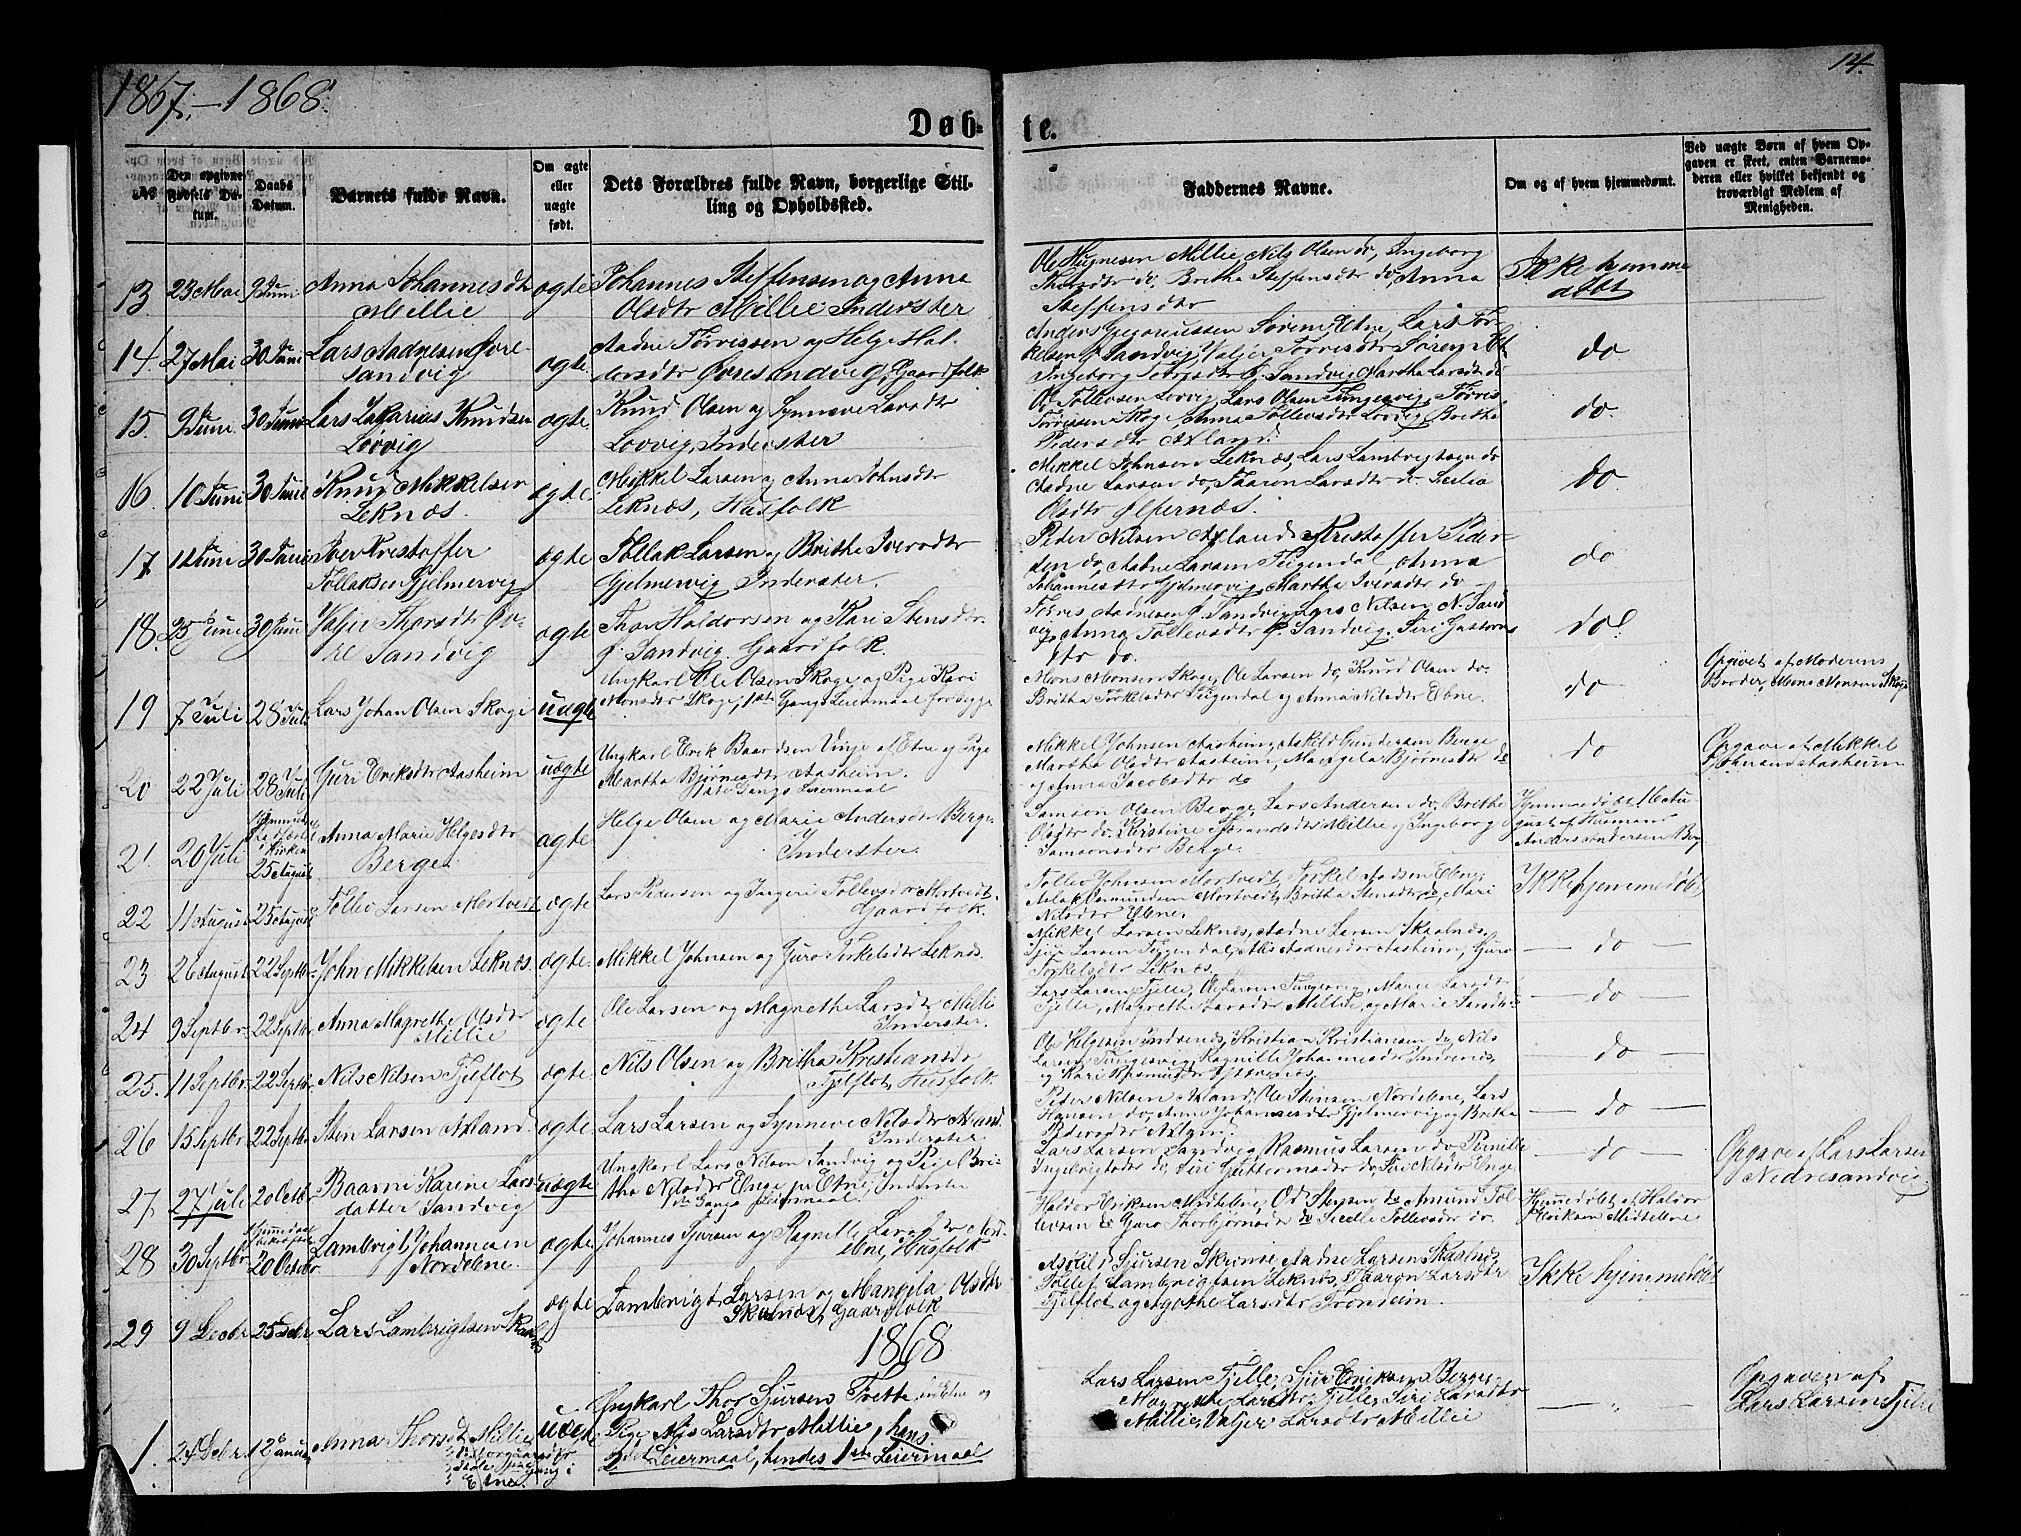 1867,-1868.
14.
Døb-
te.
No
Den opgivne Fødsels Datum.
Daabs Datum.
Barnets fulde Navn.
Om ægte eller uægte født.
Dets Forældres fulde Navn, borgerlige Stilling og Opholdssted.
Faddernes Navne.
Om og af hvem hjemmedøbt.
Ved uægte Børn af hvem Opgaven er skeet, enten Barnemoderen eller hvilket bekjendt og troværdigt Medlem af Menigheden.
13. 23 Mai 9 Juni Anna Johannesdtr Millie ægte Johannes Steffensen og Anna
Olsdtr Millie Inderster
Ole Hugnesen Millie, Nils Olsen do, Ingeborg
Thorsdtr do. Britha Steffensdtr do, Anna
Steffensdtr
Ikke hjemme
døbt
14. 27 Mai 30 Juni Lars Aadnesen Øvre
sandvig ægte Aadne Tørrissen og Helge Hal-
dorsdtr Øvresandvig, Gaardfolk
Lars Tør-
kelsen Ø Sandvig, Valjer Tørrisdtr Sørem
Ingeborg Ø. Sandvig Martha Larsdtr do
do
15. 9 Juni 30 Juni Lars Zakarias Knudsen
Lovvig ægte Knud Olsen og Synneve Larsdtr
Lovvig, Inderster
Tollevsen Lovvig, Lars Olsen Tungesvig, Tørris
Tørrissen Skoge, Anna Tollevsdtr Lovvig, Britha
Pedersdtr Axland.
do.
16. 10 Juni 30 Juni Knud Mikkelsen
Leknæs. ægte Mikkel Larsen og Anna Johnsdtr
Leknæs, Husfolk
Mikkel Johnsen Leknæs, Lars Lambrigtsen do
Aadne Larsen do, Taaron Larsdtr do
Olsdtr Ølfernæs.
do.
17. 11 Juni 30 Juni Iver Kristoffer
Tollaksen Gjelmervig ægte Tollak Larsen og Britha Iversdtr
Gjelmervig Inderster.
Peder Nilsen Axland, Kristoffer Peder-
sen do, Aadne Larsen Teigendal, Anna
Johannesdtr Gjelmervig, Martha Iversdtr do
do
18. 25 Juni 30 Juni Valjer Thorsdtr Øv-
re Sandvig ægte Thor Haldorsen og Kari Stensdtr
Ø. Sandvig. Gaardfolk.
Tørris Aadnesen Ø Sandvig, Lars Nilsen N. Sand
vig, Anna Tollevsdtr Ø. Sandvig. Siri
dtr do.
do.
19 7 Juli 28 Juli Lars Johan Olsen Skoge uægte Ungkarl Ole Olsen Skoge og Pige Kari
Monsdtr Skoge, 1ste Gangs Leiermaal for begge
Mons Monsen Skoge, Ole Larsen do, Knud Olsen do.
Britha Torkelsdtr Teigendal og Anna Nilsdtr Ebne.
do
Opgivet af Moderens
Broder, Mons Monsen Skoge
20 22 Juli 28 Juli Guri Eriksdtr Aasheim uægte Ungkarl Erik Baardsen Vinje af Etne og Pige
Martha Bjørnsdtr Aasheim.
1ste Gangs Leiermaal
Mikkel Johnsen Aasheim, Askild Gundersen Berge
Martha Olsdtr Aasheim, Mangela Bjørnsdtr do
og Anna Jacobsdtr do
do
Opgave af Mikkel
Johnsen Aasheim
21. 20 Juli
25 August Anna Marie Helgesdtr
Berge. ægte Helge Olsen og Marie Andersdtr Berge
Inderster.
Samson Olsen Berge, Lars Andersen do, Brithe
Olsdtr do, Kirstine Millie og Ingeborg
Samsonsdtr Berge.
Hjemmedøbt
Anders Andersen Berge
22 11 August 25 August Tollev Larsen Mortvedt ægte Lars Pedersen og Ingeri Tollevsdtr Mortvedt.
Gaardfolk.
Tollev Johnsen Mortvedt, Torkel Aadsen Ebne,
Aslak Mortvedt, Britha Stensdtr do, Mari
Nilsdtr Ebne.
Ikke hjemmedøbt
23 26 August 22 Septbr. John Mikkelsen Leknæs. ægte Mikkel Johnsen og Guro Torkelsdtr Leknæs.
Mikkel Larsen Leknæs, Aadne Larsen Skaalnes.
Larsen Teigendal, Aadnesdtr Aasheim, Guro
Torkelsdtr Leknæs.
— do —
24 9 Septbr. 22 Septbr. Anna Magrethe Olsdtr
Millie ægte Ole Larsen og Magrethe Larsdtr Millie
Inderster.
Lars Larsen Tjelle, Ole Larsen Tungesvig, Marie Larsdtr
Tjelle, Magrethe Larsdtr Millie, og Marie Larsdtr
— do —
25. 11 Septbr 22 Septbr. Nils Nilsen Fjelflot ægte Nils Olsen og Britha Kristiansdtr
Fjelflot, Husfolk.
Ole Helgesen Indrenæs, Kristian Kristiansen do, Nils
Larsen Tungesvig, Ragnille Johannesdtr Indrenæs,
og Kari Rasmusdtr
do
26 15 Septbr 22 Septbr Sten Larsen Axland ægte Lars Larsen og Synneve Nilsdtr Axland
Inderster
Peder Nilsen Axland, Ole Stensen Nordebne, Lars
Hansen do, Anna Johannesdtr Gjelmervig og Britha
Pedersdtr Axland.
— do —
27 27 Juli 20 Octbr Baarni Karine Lars-
datter Sandvig uægte Ungkarl Lars Nilsen Sandvig og Pige Bri-
tha Nilsdtr Enge fra Etne, Inderster
1ste Gangs Leiermaal.
Lars Larsen Sandvig, Rasmus Larsen do, Pernille
Ingebrigtsdtr do, Siri Guttormsdtr do, Siri Nilsdtr Enge
— do —
Opgave af Lars Larsen
Nedresandvig.
28 30 Septbr. 20 Octobr. Lambrigt Johannesen
Nordebne. ægte Johannes Sjursen og Ragnille Larsdtr Nord
ebne, Husfolk
Haldor Eriksen Midtebne, Od do Amund Tol-
levsen do Guro Thorbjørnsdtr do Tollevsdtr do.
Hjemmedøbt af Haldor
Eriksen Midtebne
29 9 Decbr 25 Decbr Lars Lambrigtsen Skaalnæs ægte Lambrigt Larsen og Mangela Olsdtr
Skalnæs, Gaardfolk
Askild Sjursen Skromse, Aadne Larsen Skaalnæs
Tollef Lambrigtsen Leknæs, Taaron Larsdtr
Fjelflot og Agathe Larsdtr Trondeim.
Ikke hjemmedøbt
1868
1. 24 Decbr 12 Januar Anna Thorsdtr Millie
Etne. uægte Ungkarl Thor Sjursen Tvette, Etne og
Pige Larsdtr Millie, hans
2det Leiermaal, hendes 1ste Leiermaal
Lars Larsen Tjelle, Sjur Eriksen Berge,
Magrethe Larsdtr Tjelle, Siri Larsdtr
Millie, Valjer Larsdtr Millie
— „ —
Opgaven af
Lars Larsen Tjelle